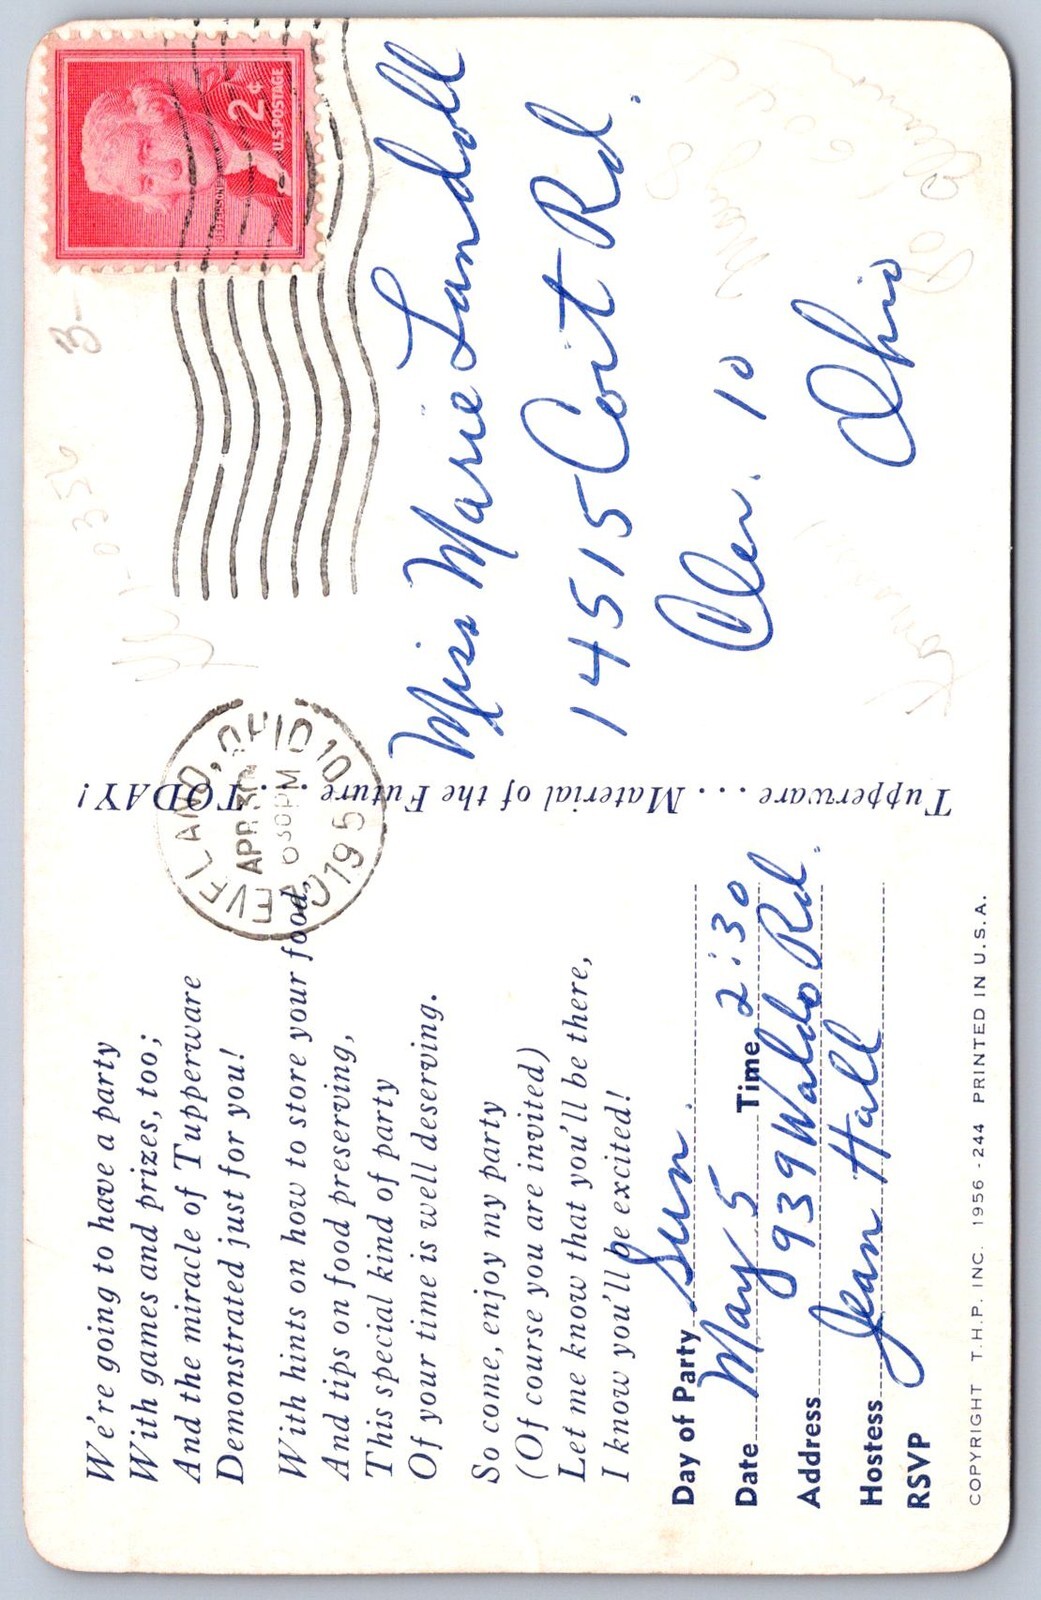 We're going to have a party
With games and prizes, too;
And the miracle of Tupperware
Demonstrated just for you!
With hints on how to store your food,
And tips on food preserving,
This special kind of party
Of your time is well deserving.
So come, enjoy my party
(Of course you are invited)
Let me know that you'll be there,
I know you'll be excited!
Day of Party Sun.
Date May 5 Time 2:30
Address 939 Waldo Rd.
Hostess Jean Hall
RSVP
COPYRIGHT T.H.P. INC. 1956 - 244 PRINTED IN U.S.A.
Tupperware . . . Material of the Future . . . TODAY!
CLEVELAND, OHIO 10
APR 30
630 PM
195
2¢
U.S. POSTAGE
JEFFERSON
3-
Miss Marie Landoll
14515 Coit Rd.
Clev. 10
Ohio